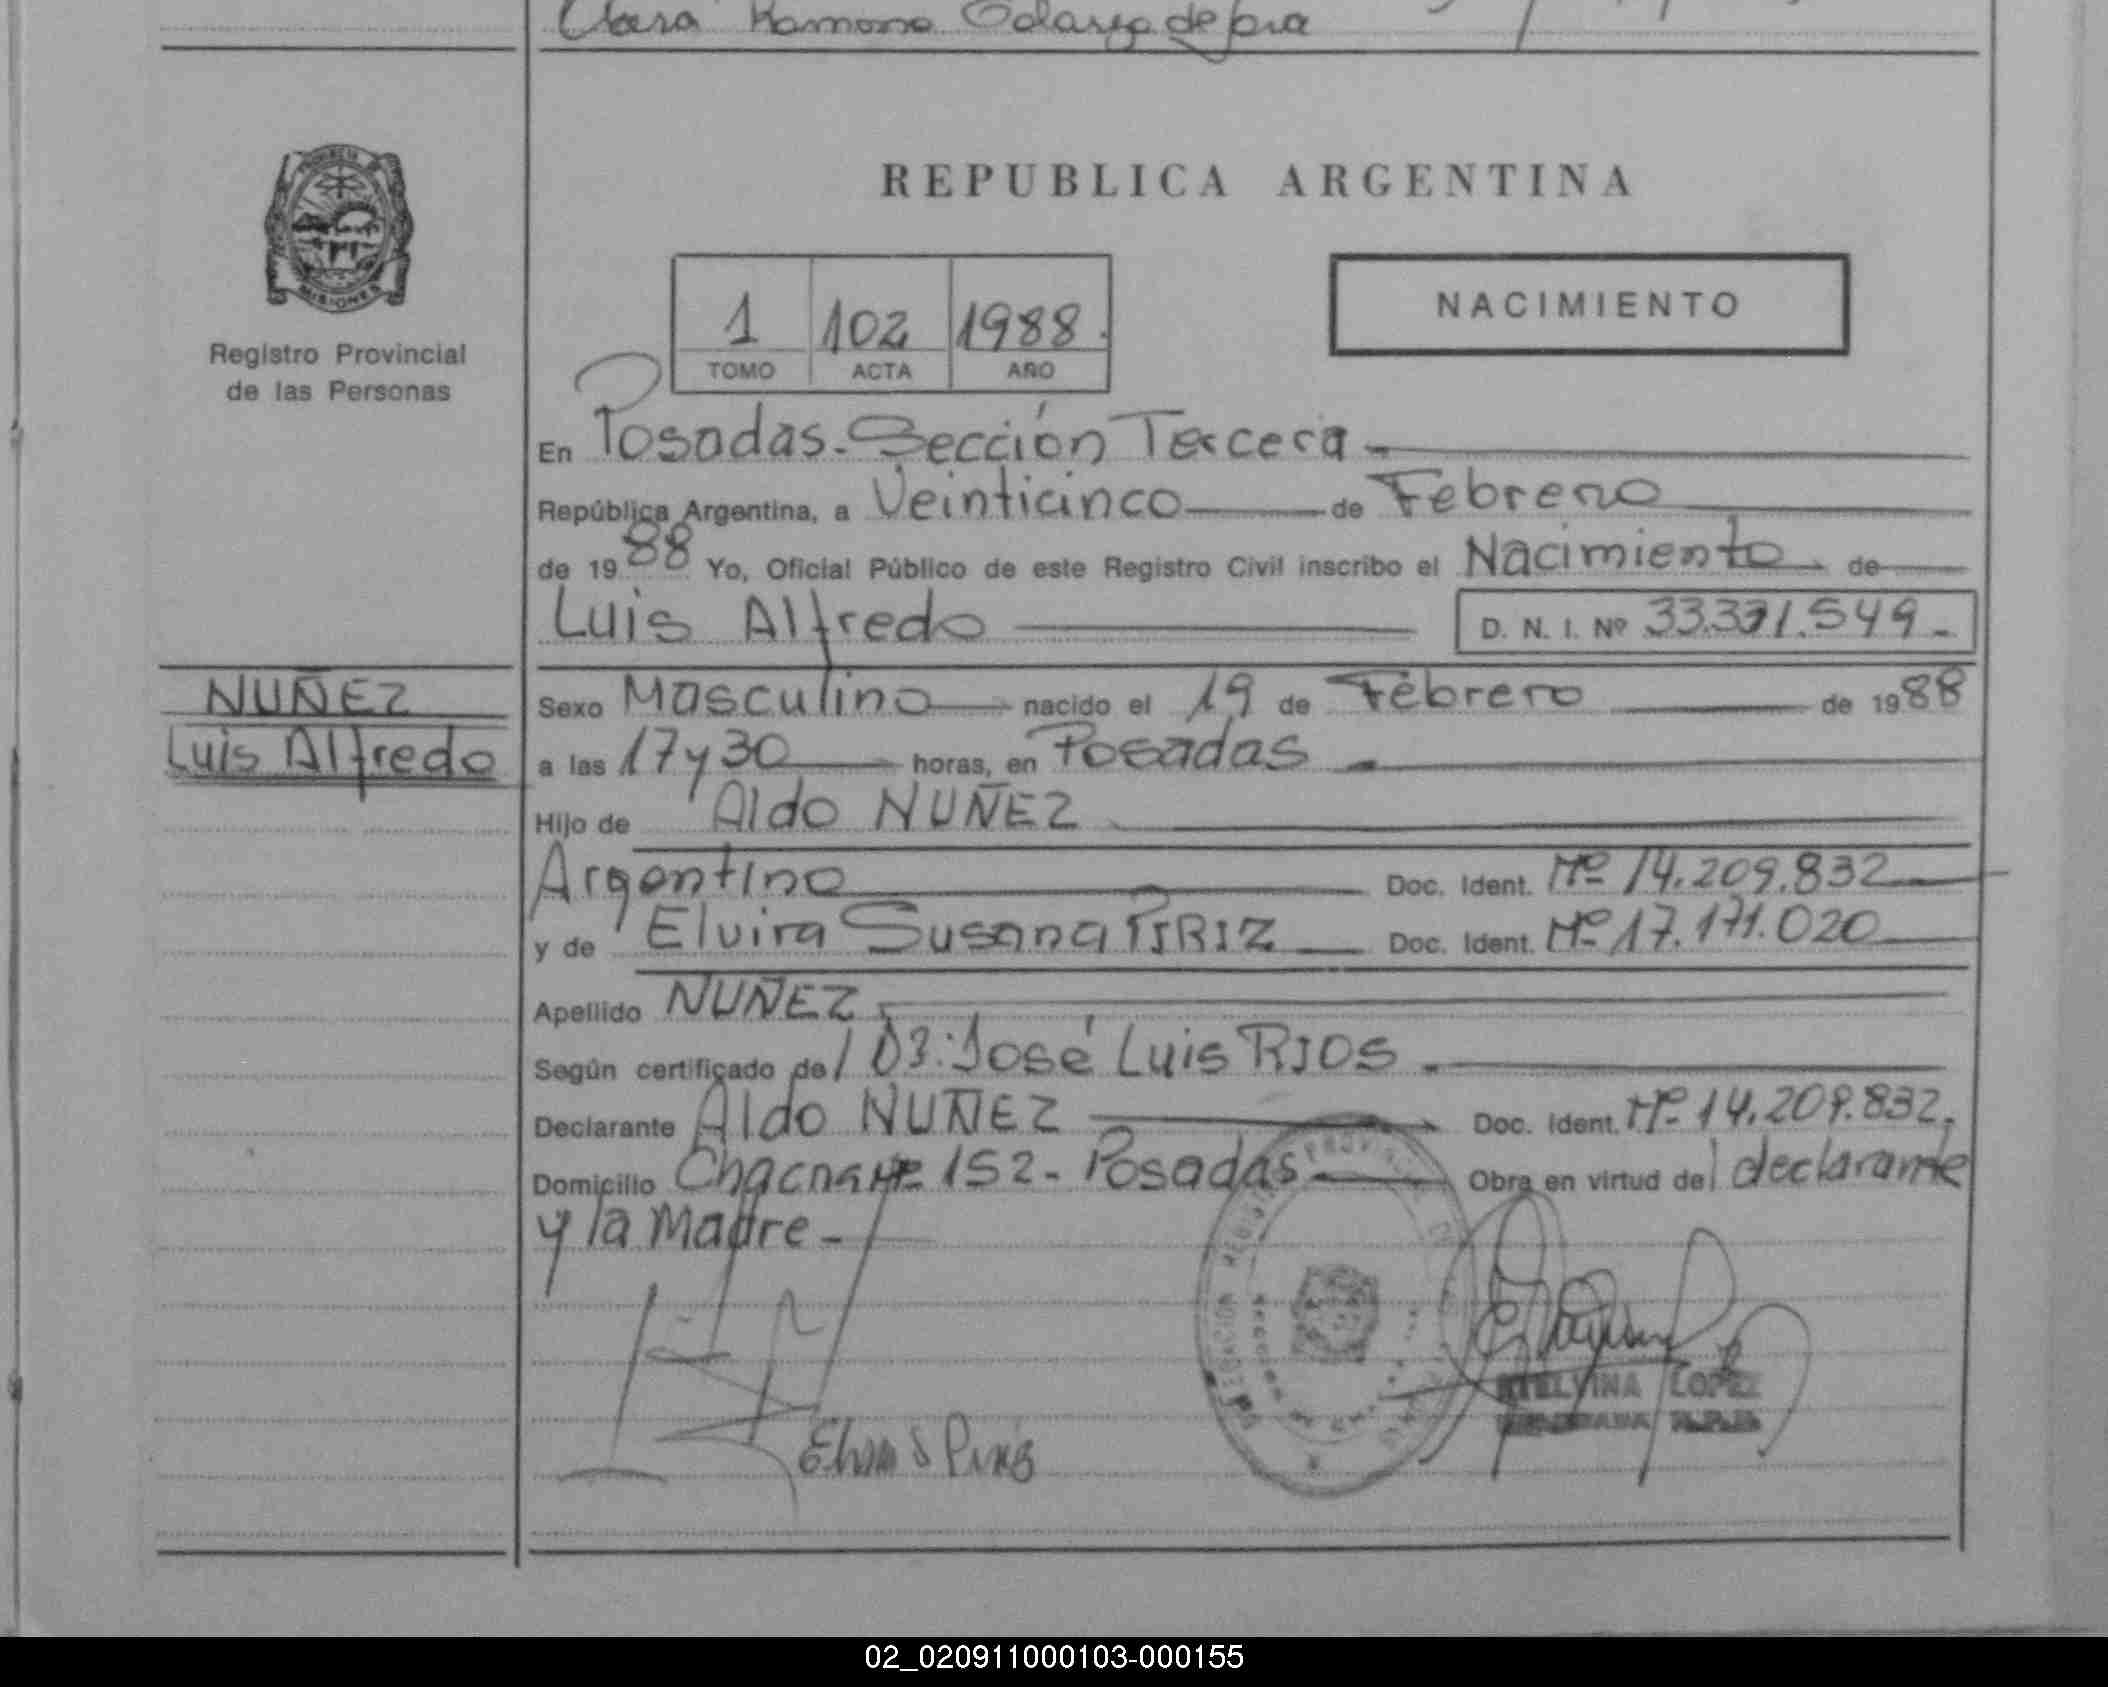 Clara Ramona
REPUBLICA ARGENTINA
PROVINCIA DE
MISIONES
Registro Provincial
de las Personas
1 102 1988.
TOMO ACTA AÑO
NACIMIENTO
En Posadas.-Sección Tercera.-
República Argentina, a Veinticinco de Febrero
de 1988 Yo, Oficial Público de este Registro Civil inscribo el Nacimiento de
Luis Alfredo D. N. I. Nº 33.331.549.-
NUÑEZ
Luis Alfredo
Sexo Masculino nacido el 19 de Febrero de 1988
a las 17 y 30 horas, en Posadas.
Hijo de Aldo NUÑEZ
Argentino Doc. Ident. Nº 14.209.832
y de Elvira Susana PIRIZ Doc. Ident. Nº 17.171.020
Apellido NUÑEZ
Según certificado del D3: José Luis RIOS.
Declarante Aldo NUÑEZ Doc. Ident. Nº 14.209.832.
Domicilio Chacra Nº 152- Posadas Obra en virtud del declarante
y la Madre.-
LOPEZ
02_020911000103-000155